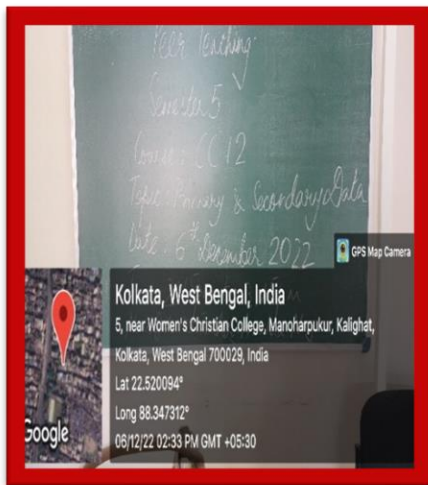 Peer Teaching
Semester 5
Course: CC 12
Topic: Primary & Secondary Data
Date: 6th December 2022
GPS Map Camera
Kolkata, West Bengal, India
5, near Women's Christian College, Manoharpukur, Kalighat,
Kolkata, West Bengal 700029, India
Lat 22.520094°
Long 88.347312°
06/12/22 02:33 PM GMT +05:30
Google